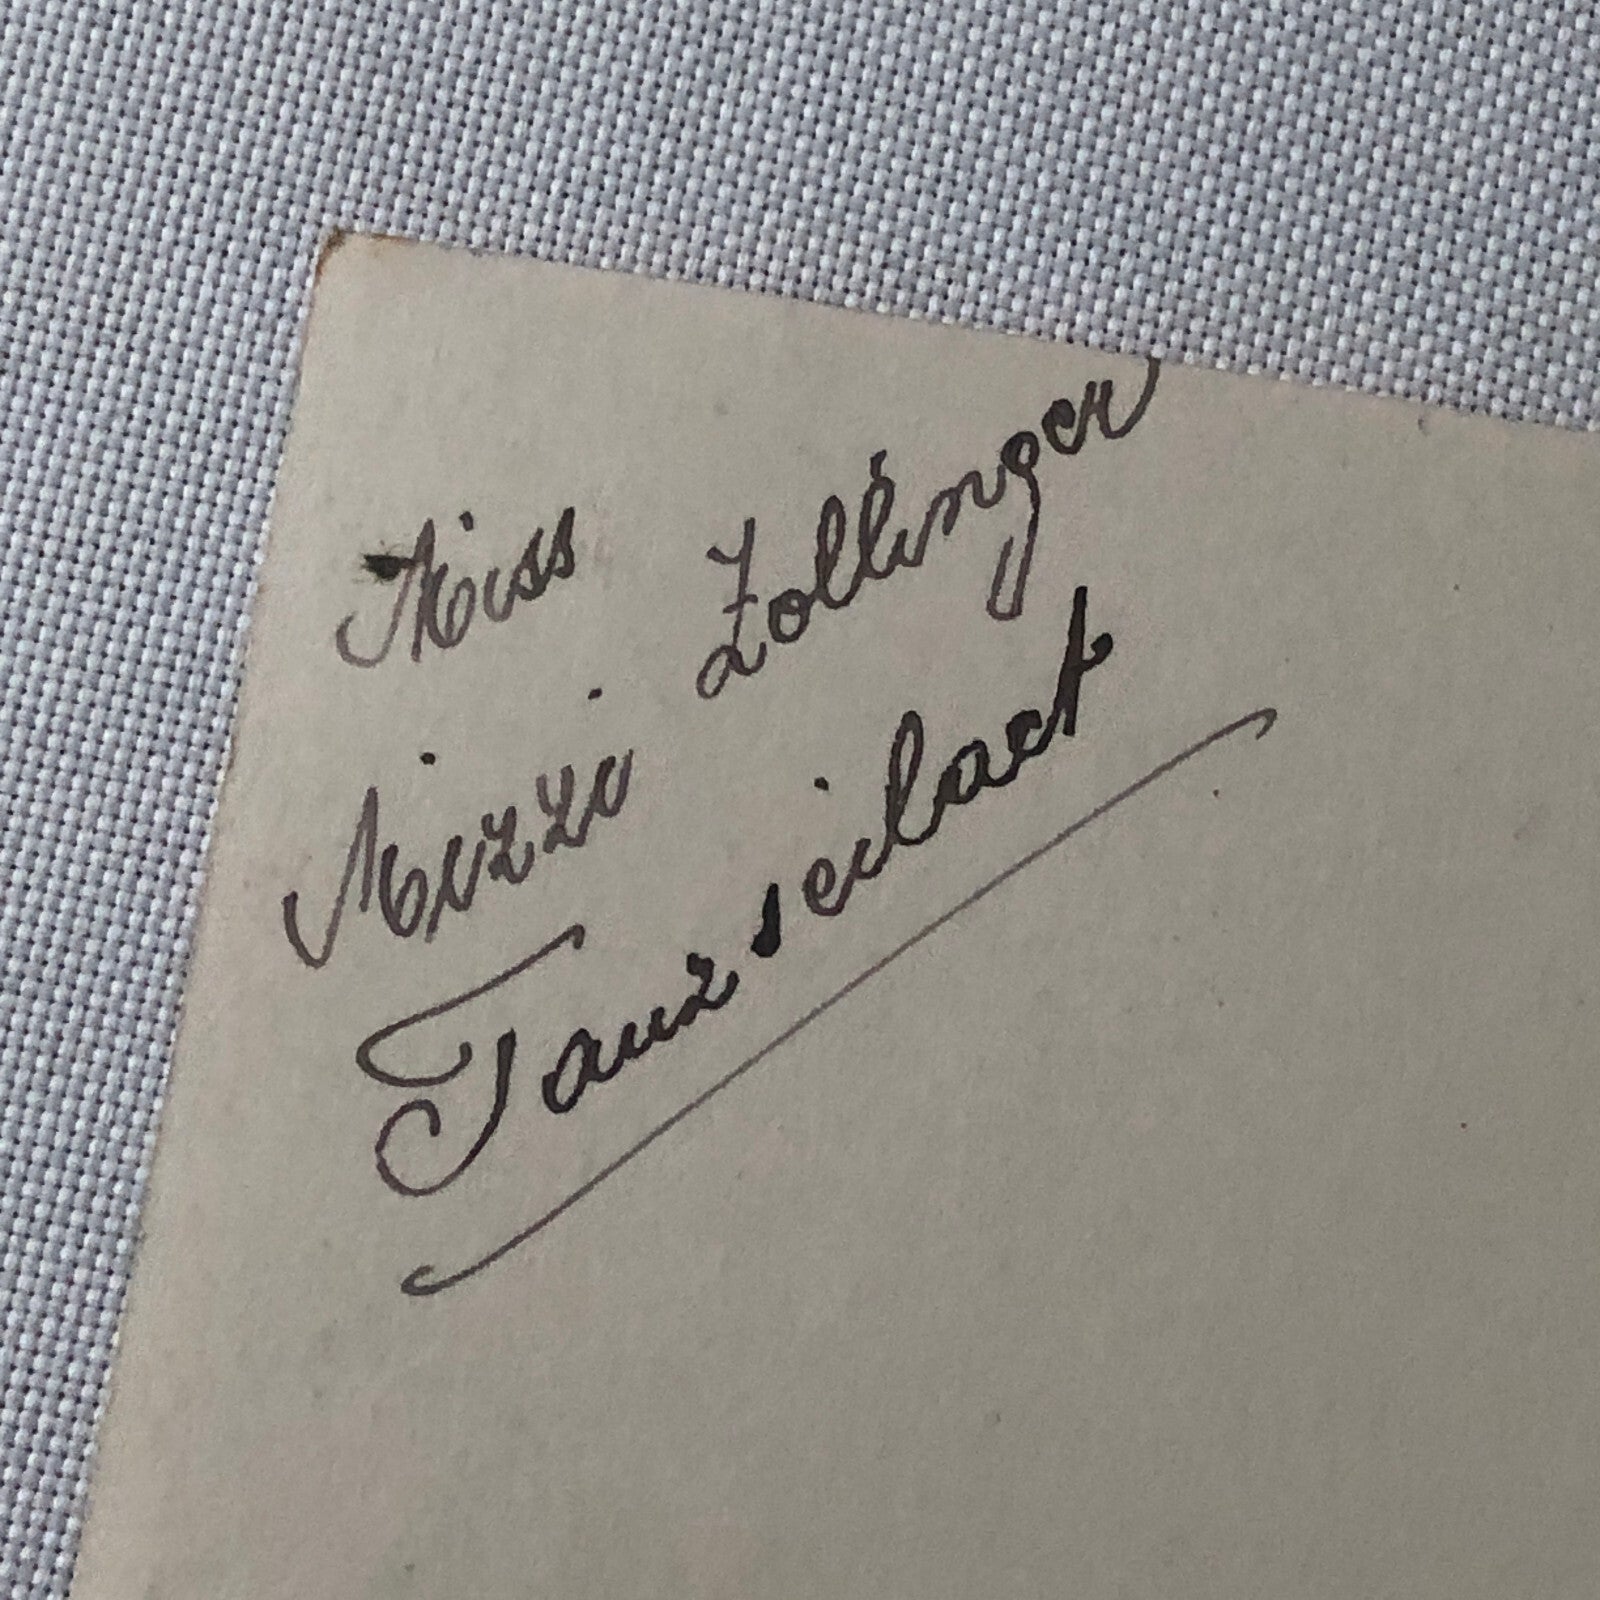 Miss
Mizzi Zollinger
Tanzseilact